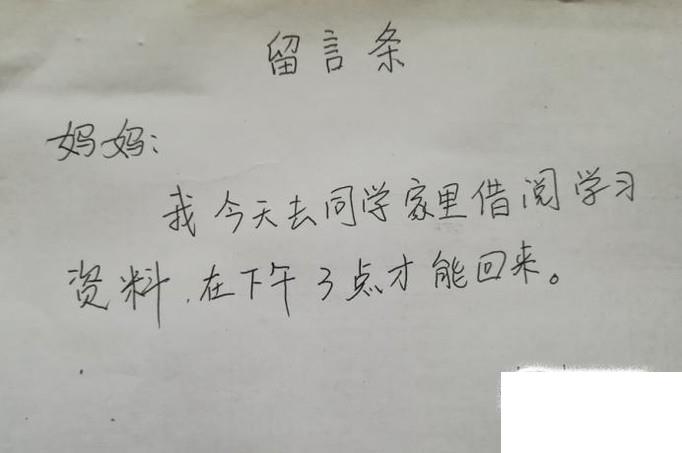 留言条
妈妈：
我今天去同学家里借阅学习
资料,在下午3点才能回来。